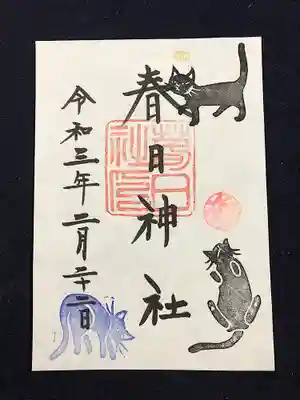 春日神社
令和三年二月二十二日
春日神社印